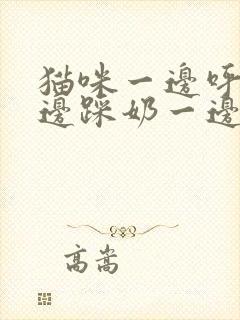 猫咪一邊呀
邊踩奶一邊
高嵩